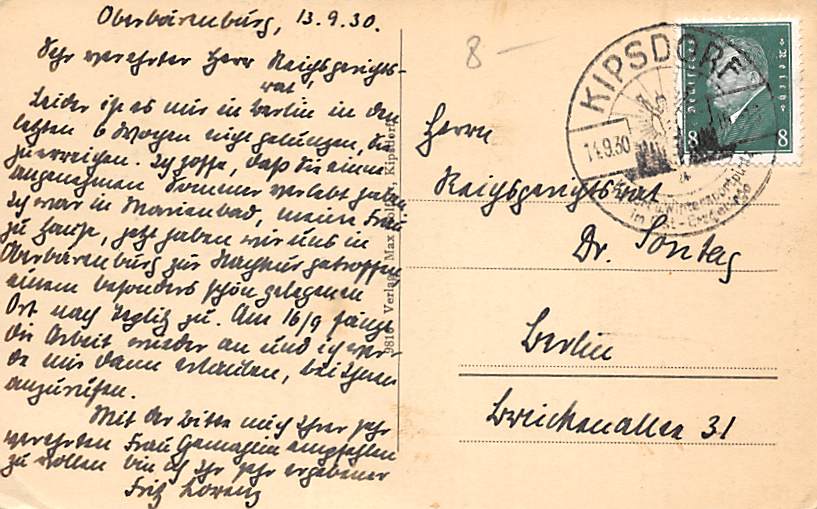 Oberbärenburg, 13.9.30.
Sehr verehrter Herr Reichsgerichts-
rat!
Leider ist es mir in Berlin in den
letzten 6 Wochen nicht gelungen, Sie
zu erreichen. Ich hoffe, daß Sie einen
angenehmen Sommer verlebt haben
Ich war in Marienbad, meine Frau
zu Hause, jetzt haben wir uns in
Oberbärenburg zur Nachkur getroffen
einem besonders schön gelegenen
Ort nach zu. Am 16/9 fängt
die Arbeit wieder an und ich wer-
de mir dann erlauben, bei Ihnen
anzurufen.
Mit der Bitte mich Ihrer sehr
verehrten Frau Gemahlin empfehlen
zu wollen bin ich Ihr sehr ergebener
Fritz Lorenz
9816 Verlag Max Kipsdorf
8 —
Herrn
Reichsgerichtsrat
Dr. Sontag
Berlin
Brückenallee 31
KIPSDORF
14.9.30
Wintersportplatz
im
Deutsches Reich
8 8